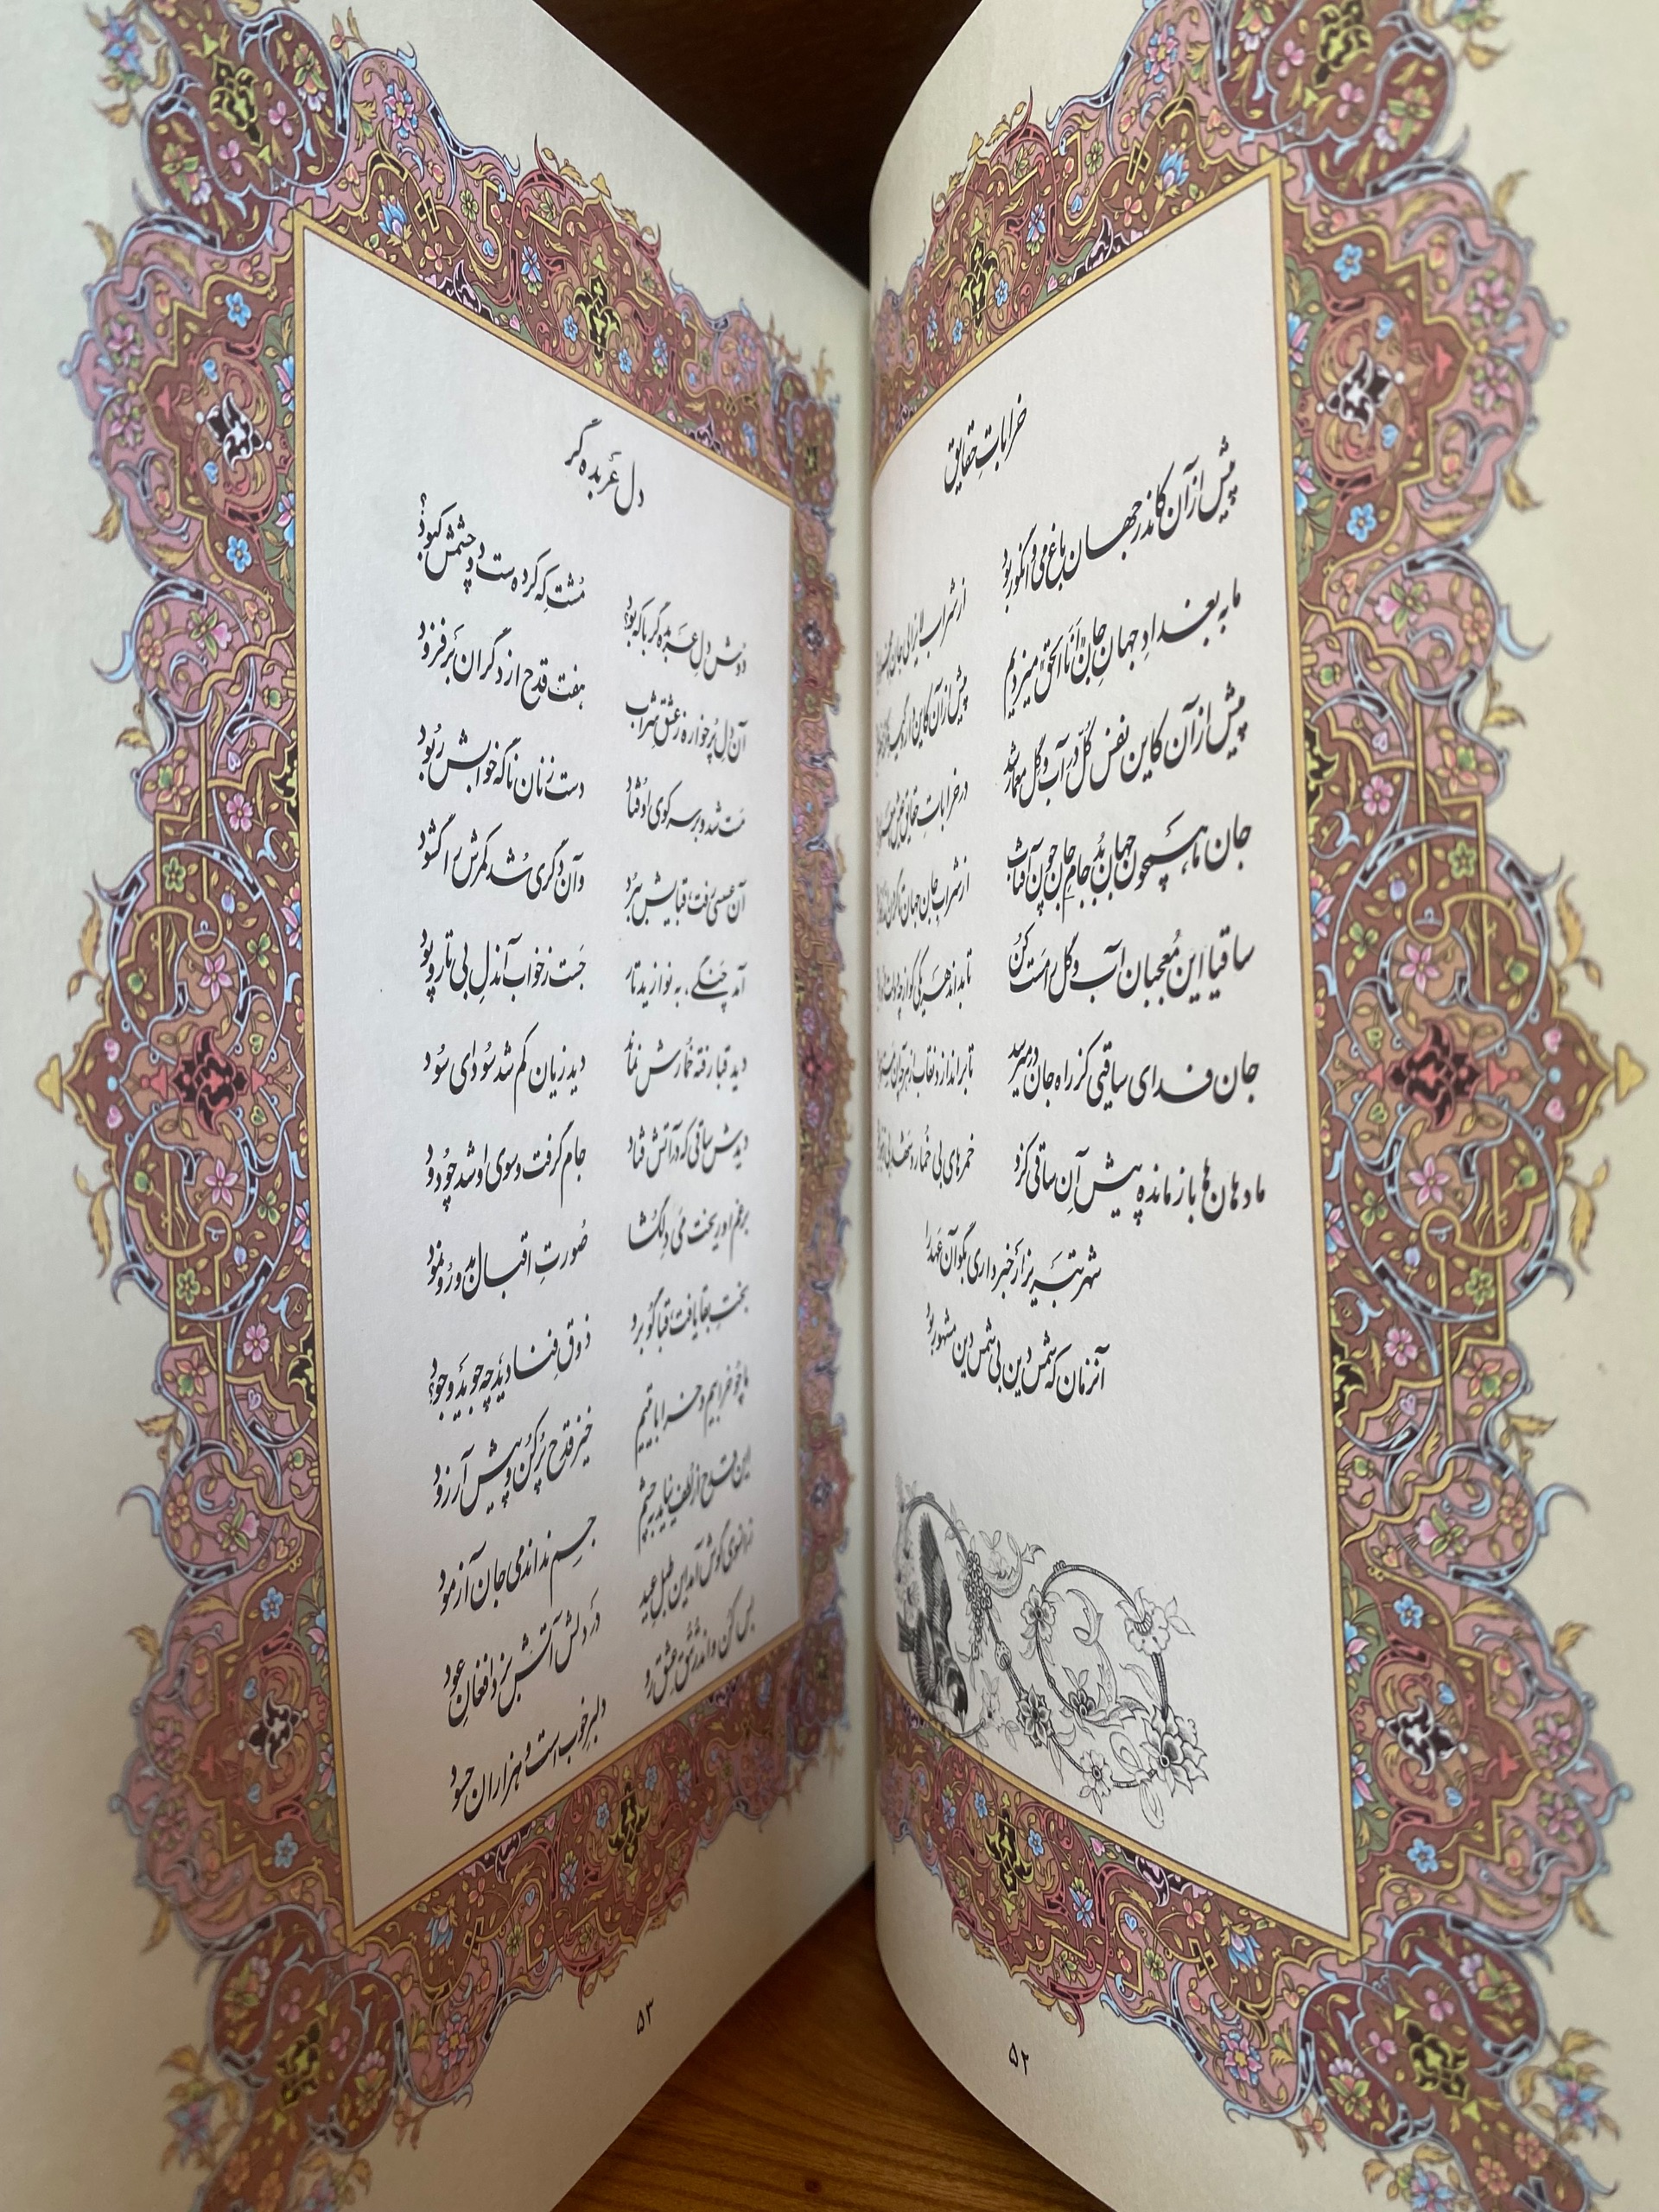 خراباتِ حقایق
پیش از آن کاندر جهان باغ می و انگور بود از شراب لایزالی جان
ما به بغدادِ جهانِ جان اَنَا الحَق میزدیم پیش از آن کاین
پیش از آن کاین نفس کُل در آب و گل معمار شد در خراباتِ حقایق عیش
جان ما همچون جهان بُد جامِ جان چون آفتاب از شراب جان جهان تا گردن
ساقیا این مُعجبان آب و گل را مست کُن تا بداند هر یکی کو از چه دولت
جان فدای ساقیی کز راه جان در میرسد تا براندازد نقاب از هر چه آن
ما دهان‌ها باز مانده پیش آن ساقی کزو خمرهای بی خُمار و شهد بی
شهر تبریز ار خبر داری بگو آن عهد را
آنزمان که شمس دین بی شمس دین مشهور بود
۵۲
دل عربده گر
دوش دلِ عَربده گر با که بود؟ مُشتِ که کرده ست دو چشمش کبود؟
آن دلِ پُر خواره ز عشقِ شراب هفت قدح از دگران بَرفزود
مست شد و بر سر کوی اوفتاد دست زنان ناگه خوابش رُبود
آن عسسی رفت، قبایش ببُرد وآن دگری شد کمرش را گشود
آمد چنگی، به نوازید تار جَست ز خواب آن دلِ بی تار و پود
دید قبا رفته خُمارش نماند دید زیان کم شد سودای سود
دیدش ساقی که در آتش فتاد جام گرفت و سوی او شد چو دود
بر غم او ریخت میِ دلگُشا صُورتِ اقبال بدو رُو نمود
بختِ بقا یافت قبا گو برو ذوق فنا دید چه جوید وجود؟
ما چو خرابیم و خراباتییم خیز قدح پُر کُن و پیش آر زود
این قدح از لطف نیاید به چشم جسم نداند می جان آزمود
زانسوی گوش آمد این طبل عید در دلش آتش بزد افغانِ عود
بس کن و اندر تُتُق عشق رو دلبر خوب است و هزاران حسود
۵۳